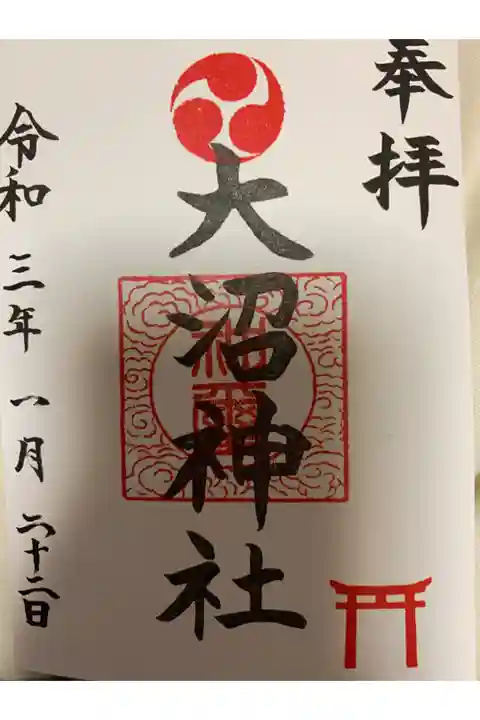 奉拝
大沼神社
令和三年一月二十二日